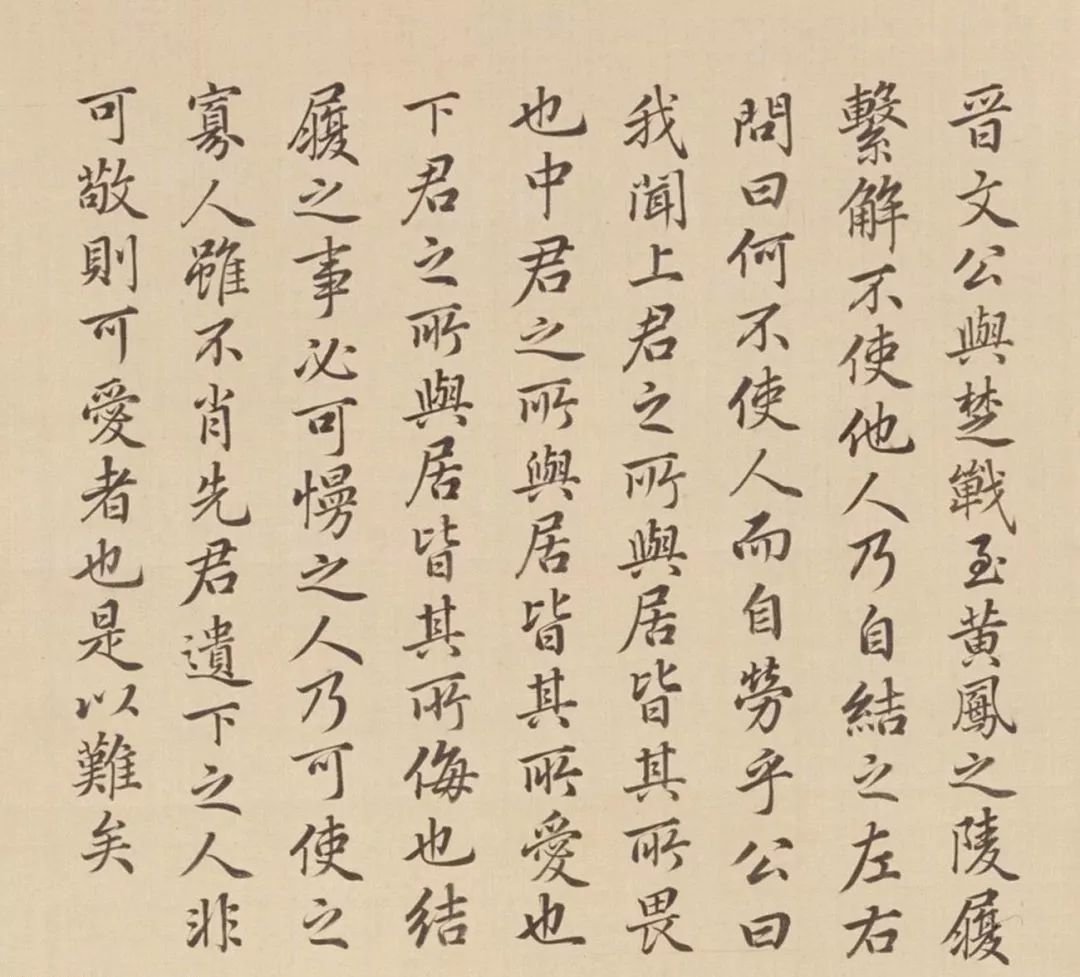 晋文公與楚戰至黄鳳之陵履
繫解不使他人乃自結之左右
問曰何不使人而自勞乎公曰
我聞上君之所與居皆其所畏
也中君之所與居皆其所愛也
下君之所與居皆其所侮也結
履之事必可慢之人乃可使之
寡人雖不肖先君遺下之人非
可敬則可愛者也是以難矣